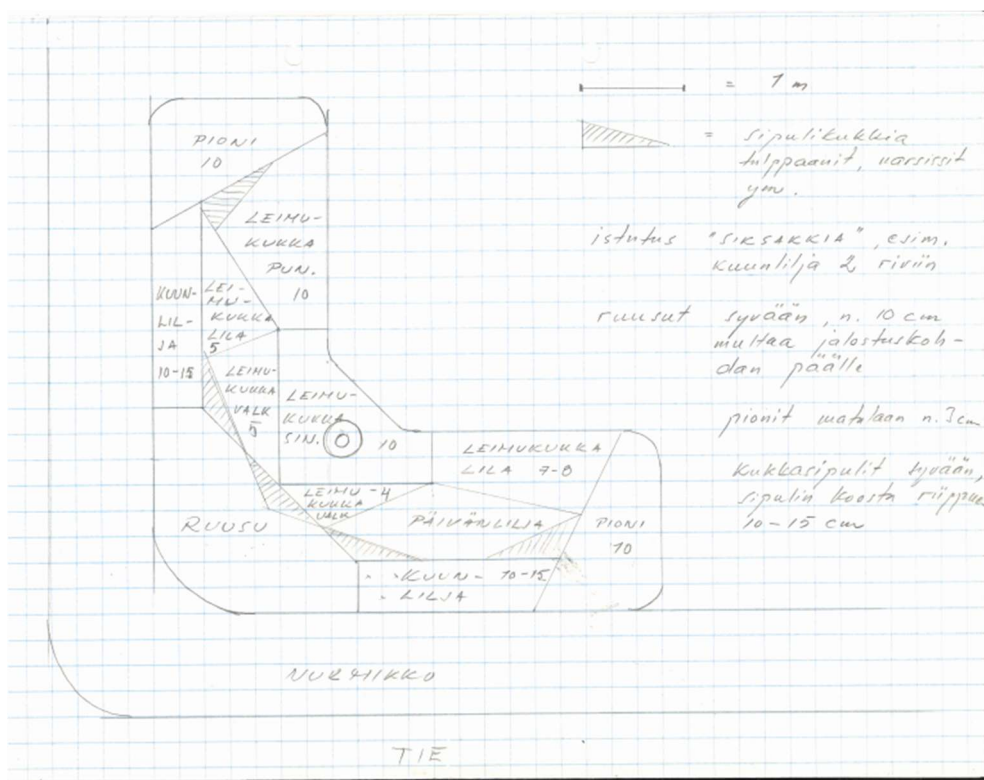 = 1 m
= sipulikukkia
tulppaanit, narsissit
ym.
istutus "SIKSAKKIA", esim.
kuunlilja 2 riviin
ruusut syvään, n. 10 cm
multaa jalostuskoh-
dan päälle
pionit matalaan n. 3 cm
Kukkasipulit syvään,
sipulin koosta riippuen
10-15 cm
PIONI
10
LEIMU-
KUKKA
PUN.
10
KUUN-
LIL-
JA
10-15
LEI-
MU-
KUKKA
LILA
5
LEIMU-
KUKKA
VALK
5
LEIMU-
KUKKA
SIN.
10
LEIMUKUKKA
LILA 7-8
LEIMU-4
KUKKA
VALK
RUUSU
PÄIVÄNLILJA
PIONI
10
KUUN- 10-15
LILJA
NURMIKKO
TIE